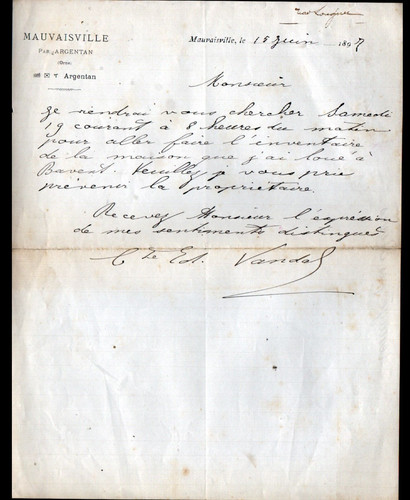 MAUVAISVILLE
PAR ARGENTAN
(Orne)
Argentan
Mauvaisville, le 15 Juin 1897
Monsieur
Je viendrai vous chercher Samedi
19 courant à 8 heures du matin
pour aller faire l'inventaire
de la maison que j'ai loué à
Bavent. Veuillez je vous prie
prévenir la propriétaire.
Recevez Monsieur l'expression
de mes sentiments distingués
Cte Ed. Vandal